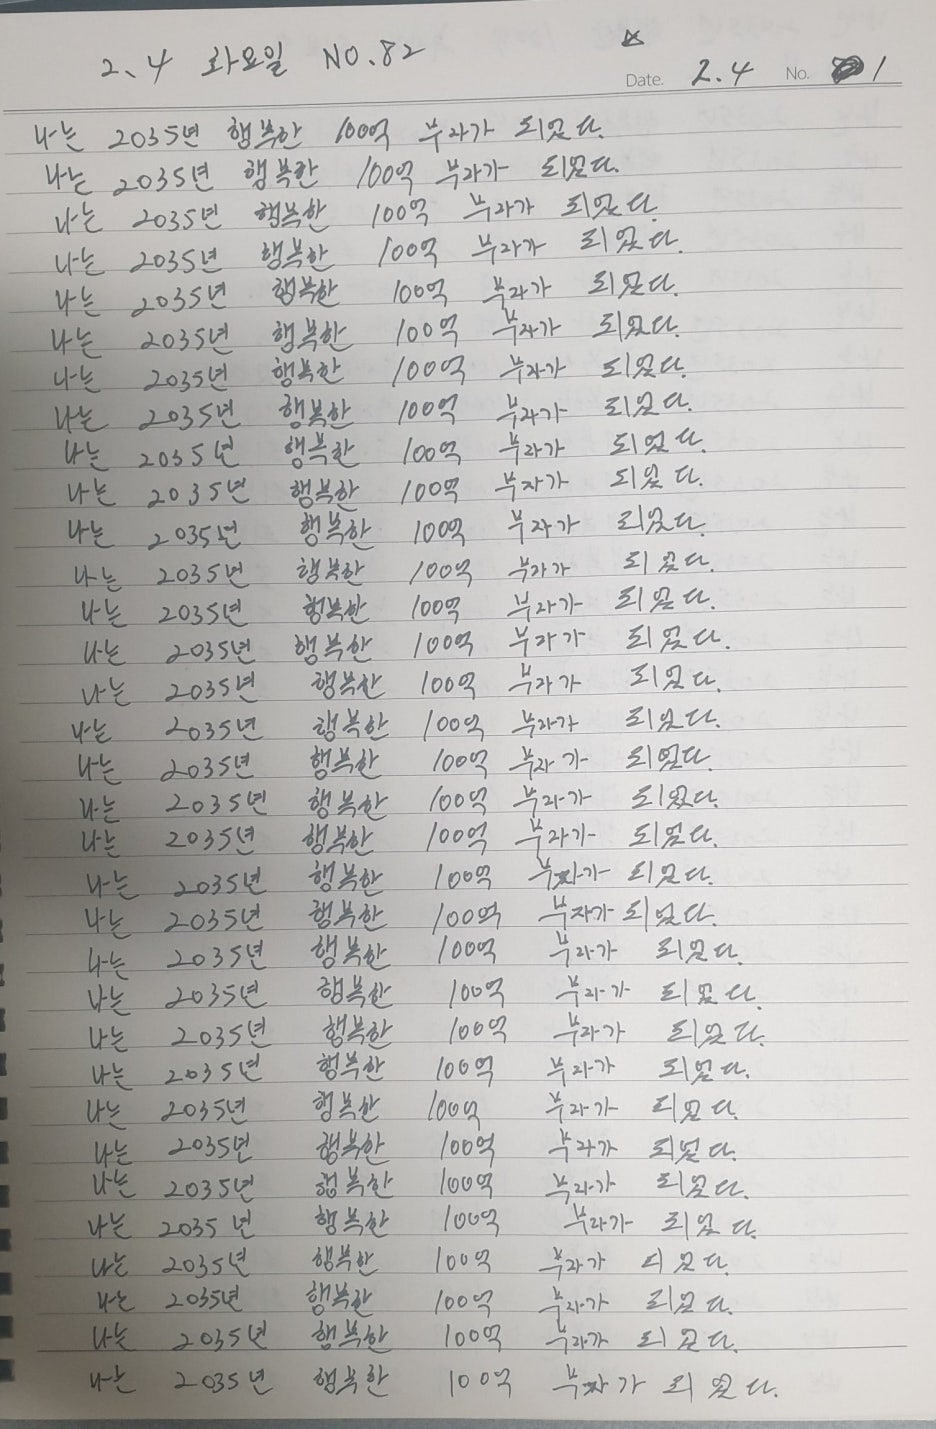 2.4 화요일 NO.82
Date. 2.4 No. 1
나는 2035년 행복한 100억 부자가 되었다.
나는 2035년 행복한 100억 부자가 되었다.
나는 2035년 행복한 100억 부자가 되었다.
나는 2035년 행복한 100억 부자가 되었다.
나는 2035년 행복한 100억 부자가 되었다.
나는 2035년 행복한 100억 부자가 되었다.
나는 2035년 행복한 100억 부자가 되었다.
나는 2035년 행복한 100억 부자가 되었다.
나는 2035년 행복한 100억 부자가 되었다.
나는 2035년 행복한 100억 부자가 되었다.
나는 2035년 행복한 100억 부자가 되었다.
나는 2035년 행복한 100억 부자가 되었다.
나는 2035년 행복한 100억 부자가 되었다.
나는 2035년 행복한 100억 부자가 되었다.
나는 2035년 행복한 100억 부자가 되었다.
나는 2035년 행복한 100억 부자가 되었다.
나는 2035년 행복한 100억 부자가 되었다.
나는 2035년 행복한 100억 부자가 되었다.
나는 2035년 행복한 100억 부자가 되었다.
나는 2035년 행복한 100억 부자가 되었다.
나는 2035년 행복한 100억 부자가 되었다.
나는 2035년 행복한 100억 부자가 되었다.
나는 2035년 행복한 100억 부자가 되었다.
나는 2035년 행복한 100억 부자가 되었다.
나는 2035년 행복한 100억 부자가 되었다.
나는 2035년 행복한 100억 부자가 되었다.
나는 2035년 행복한 100억 부자가 되었다.
나는 2035년 행복한 100억 부자가 되었다.
나는 2035년 행복한 100억 부자가 되었다.
나는 2035년 행복한 100억 부자가 되었다.
나는 2035년 행복한 100억 부자가 되었다.
나는 2035년 행복한 100억 부자가 되었다.
나는 2035년 행복한 100억 부자가 되었다.